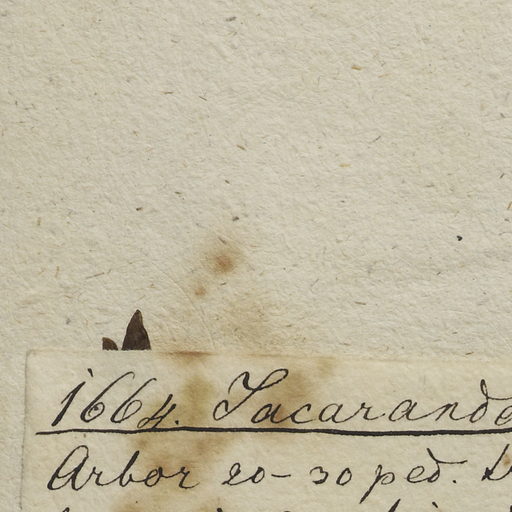 1664. Jacaranda
Arbor 20-30 ped.